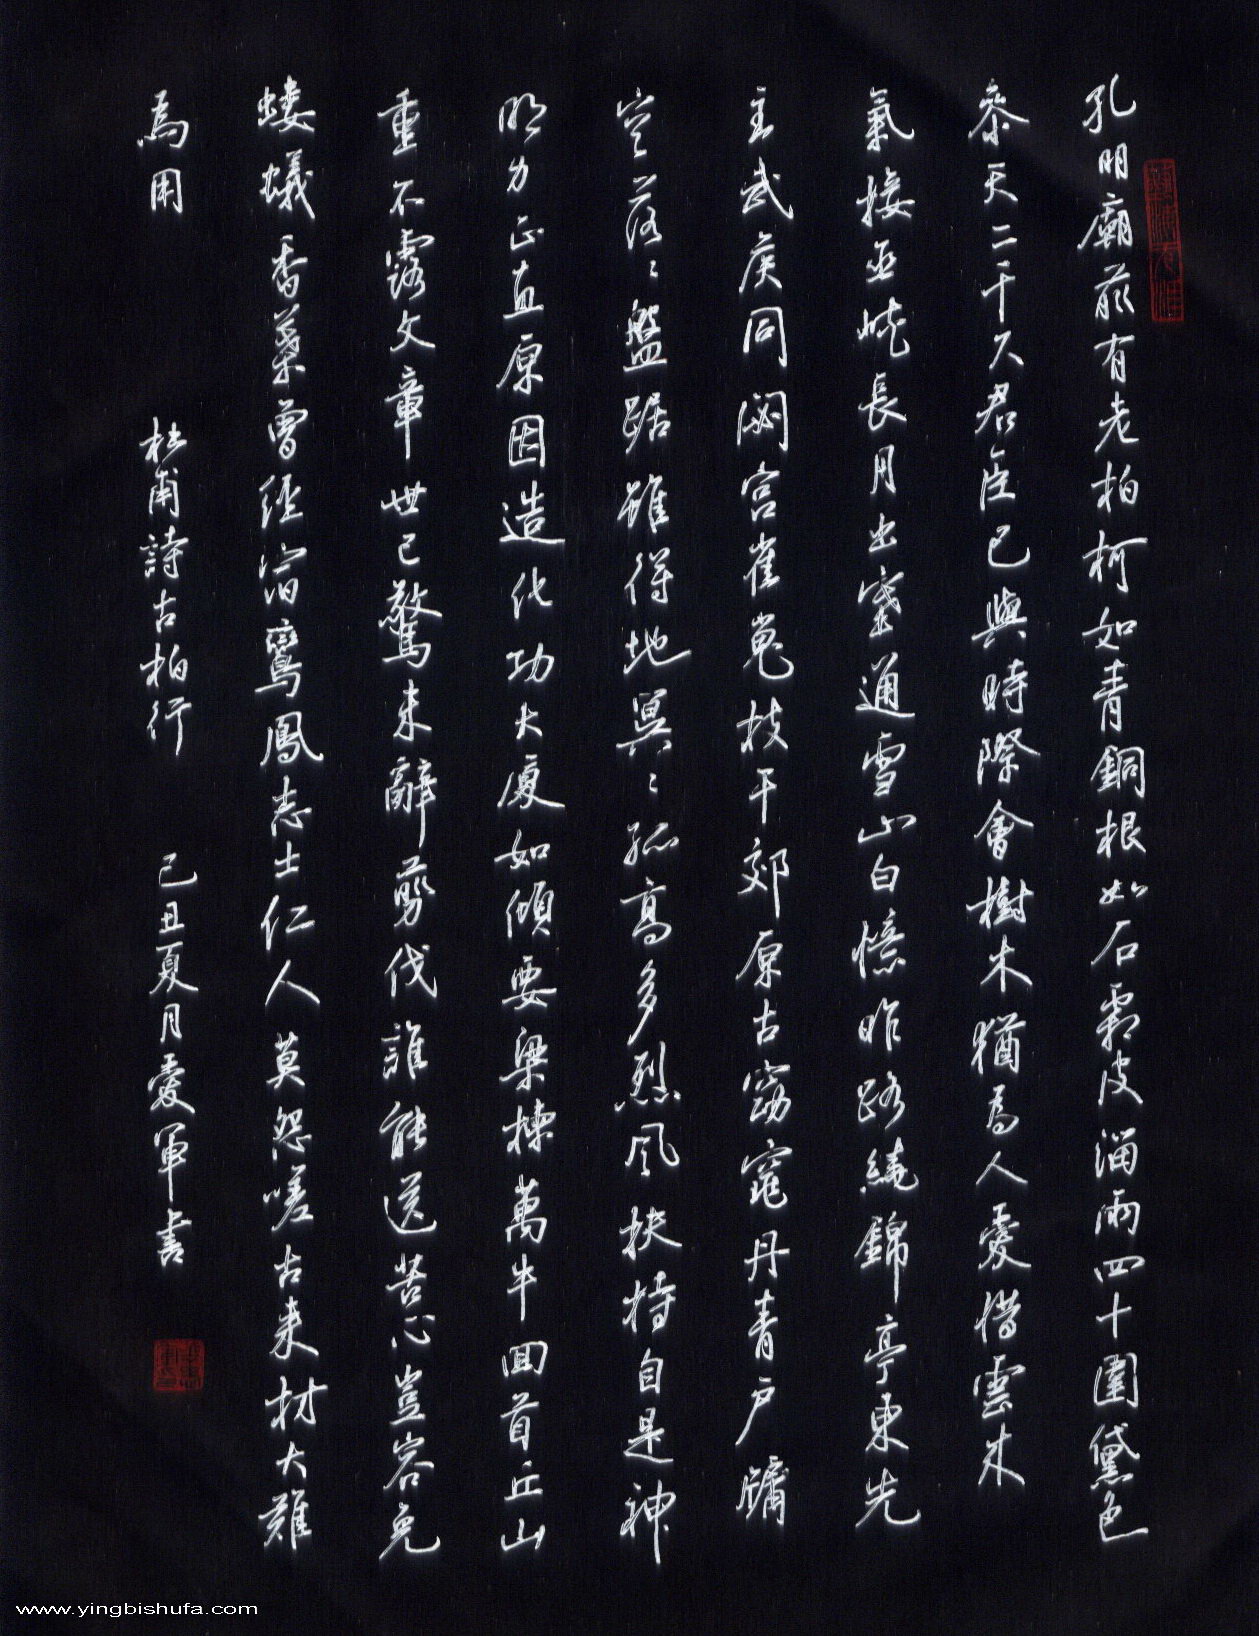 孔明廟前有老柏柯如青銅根如石霜皮溜雨四十圍黛色
參天二千尺君臣已與時際會樹木猶為人愛惜雲來
氣接巫峽長月出寒通雪山白憶昨路繞錦亭東先
主武侯同閟宮崔嵬枝干郊原古窈窕丹青戶牖
空落〻盤踞雖得地冥〻孤高多烈風扶持自是神
明力正直原因造化功大廈如傾要梁棟萬牛回首丘山
重不露文章世已驚未辭剪伐誰能送苦心豈容免
螻蟻香葉曾經宿鸞鳳志士仁人莫怨嗟古來材大難
為用 杜甫詩古柏行 己丑夏月愛軍書
www.yingbishufa.com